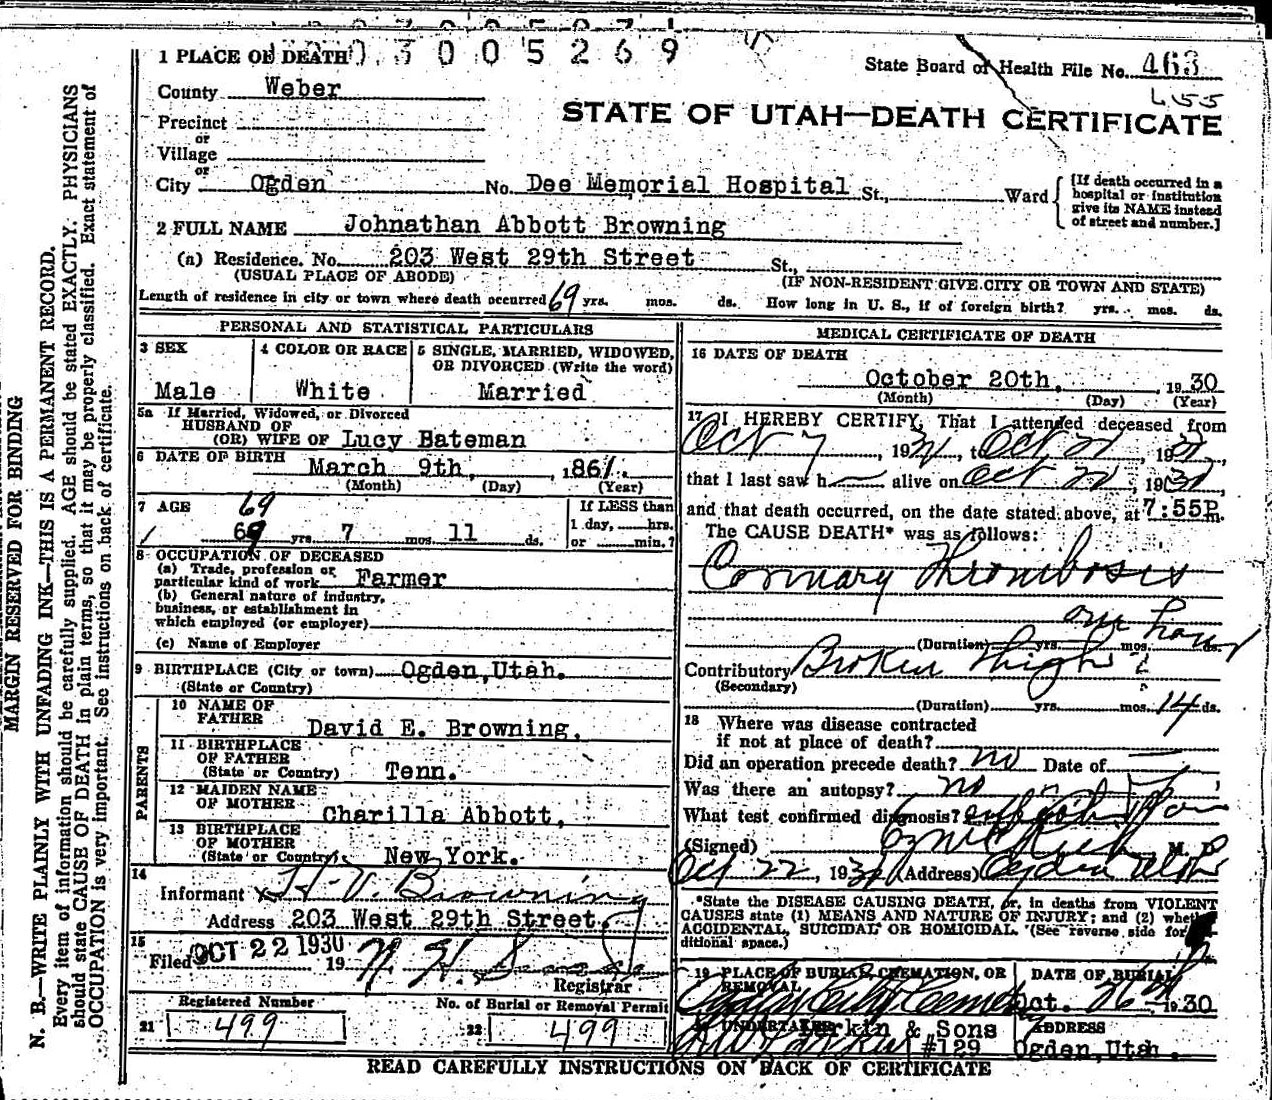 1003005269
1 PLACE OF DEATH
State Board of Health File No. 463
County Weber
STATE OF UTAH—DEATH CERTIFICATE
Precinct
or
Village
or
City Ogden No. Dee Memorial Hospital St., Ward
[If death occurred in a
hospital or institution
give its NAME instead
of street and number.]
2 FULL NAME Johnathan Abbott Browning
(a) Residence. No. 203 West 29th Street St.,
(USUAL PLACE OF ABODE) (IF NON-RESIDENT GIVE CITY OR TOWN AND STATE)
Length of residence in city or town where death occurred 69 yrs. mos. ds. How long in U. S., if of foreign birth? yrs. mos. ds.
PERSONAL AND STATISTICAL PARTICULARS
3 SEX 4 COLOR OR RACE 5 SINGLE, MARRIED, WIDOWED,
OR DIVORCED (Write the word)
Male White Married
5a If Married, Widowed, or Divorced
HUSBAND OF
(OR) WIFE OF Lucy Bateman
6 DATE OF BIRTH
March 9th, 1861.
(Month) (Day) (Year)
7 AGE 69 If LESS than
69 yrs. 7 mos. 11 ds. 1 day, hrs.
or min.?
8 OCCUPATION OF DECEASED
(a) Trade, profession or
particular kind of work Farmer
(b) General nature of industry,
business, or establishment in
which employed (or employer)
(c) Name of Employer
9 BIRTHPLACE (City or town) Ogden, Utah.
(State or Country)
PARENTS
10 NAME OF
FATHER David E. Browning.
11 BIRTHPLACE
OF FATHER
(State or Country) Tenn.
12 MAIDEN NAME
OF MOTHER
Charilla Abbott,
13 BIRTHPLACE
OF MOTHER
(State or Country) New York.
14
Informant H. V. Browning
Address 203 West 29th Street.
15
Filed OCT 22 1930 19
Registrar
Registered Number No. of Burial or Removal Permit
21 499 22 499
MEDICAL CERTIFICATE OF DEATH
16 DATE OF DEATH
October 20th, 1930
(Month) (Day) (Year)
17 I HEREBY CERTIFY, That I attended deceased from
Oct 7, 19 to Oct, 19
that I last saw h alive on Oct, 19
and that death occurred, on the date stated above, at 7:55P m.
The CAUSE DEATH* was as follows:
Coronary Thrombosis
one hour
(Duration) yrs. mos. ds.
Contributory Broken Thigh
(Secondary)
(Duration) yrs. mos. 14 ds.
18 Where was disease contracted
if not at place of death?
Did an operation precede death? no Date of
Was there an autopsy? no
What test confirmed diagnosis?
(Signed) M. D.
Oct 22, 19 (Address) Ogden Utah
*State the DISEASE CAUSING DEATH, or, in deaths from VIOLENT
CAUSES state (1) MEANS AND NATURE OF INJURY; and (2) whether
ACCIDENTAL, SUICIDAL OR HOMICIDAL. (See reverse side for
ditional space.)
19 PLACE OF BURIAL, CREMATION, OR
REMOVAL DATE OF BURIAL
Ogden City Cemetery Oct. 26th, 1930
UNDERTAKER Larkin & Sons ADDRESS
#129 Ogden, Utah.
READ CAREFULLY INSTRUCTIONS ON BACK OF CERTIFICATE
MARGIN RESERVED FOR BINDING
N. B.—WRITE PLAINLY WITH UNFADING INK—THIS IS A PERMANENT RECORD.
Every item of information should be carefully supplied. AGE should be stated EXACTLY. PHYSICIANS
should state CAUSE OF DEATH in plain terms, so that it may be properly classified. Exact statement of
OCCUPATION is very important. See instructions on back of certificate.